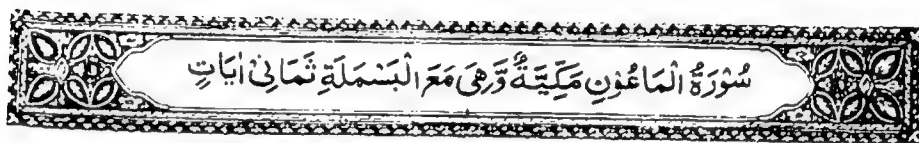 سُوْرَةُ الْمَاعُوْنِ مَكِّيَّةٌ وَّهِىَ مَعَ الْبَسْمَلَةِ ثَمَانِىْ اٰيَاتٍ